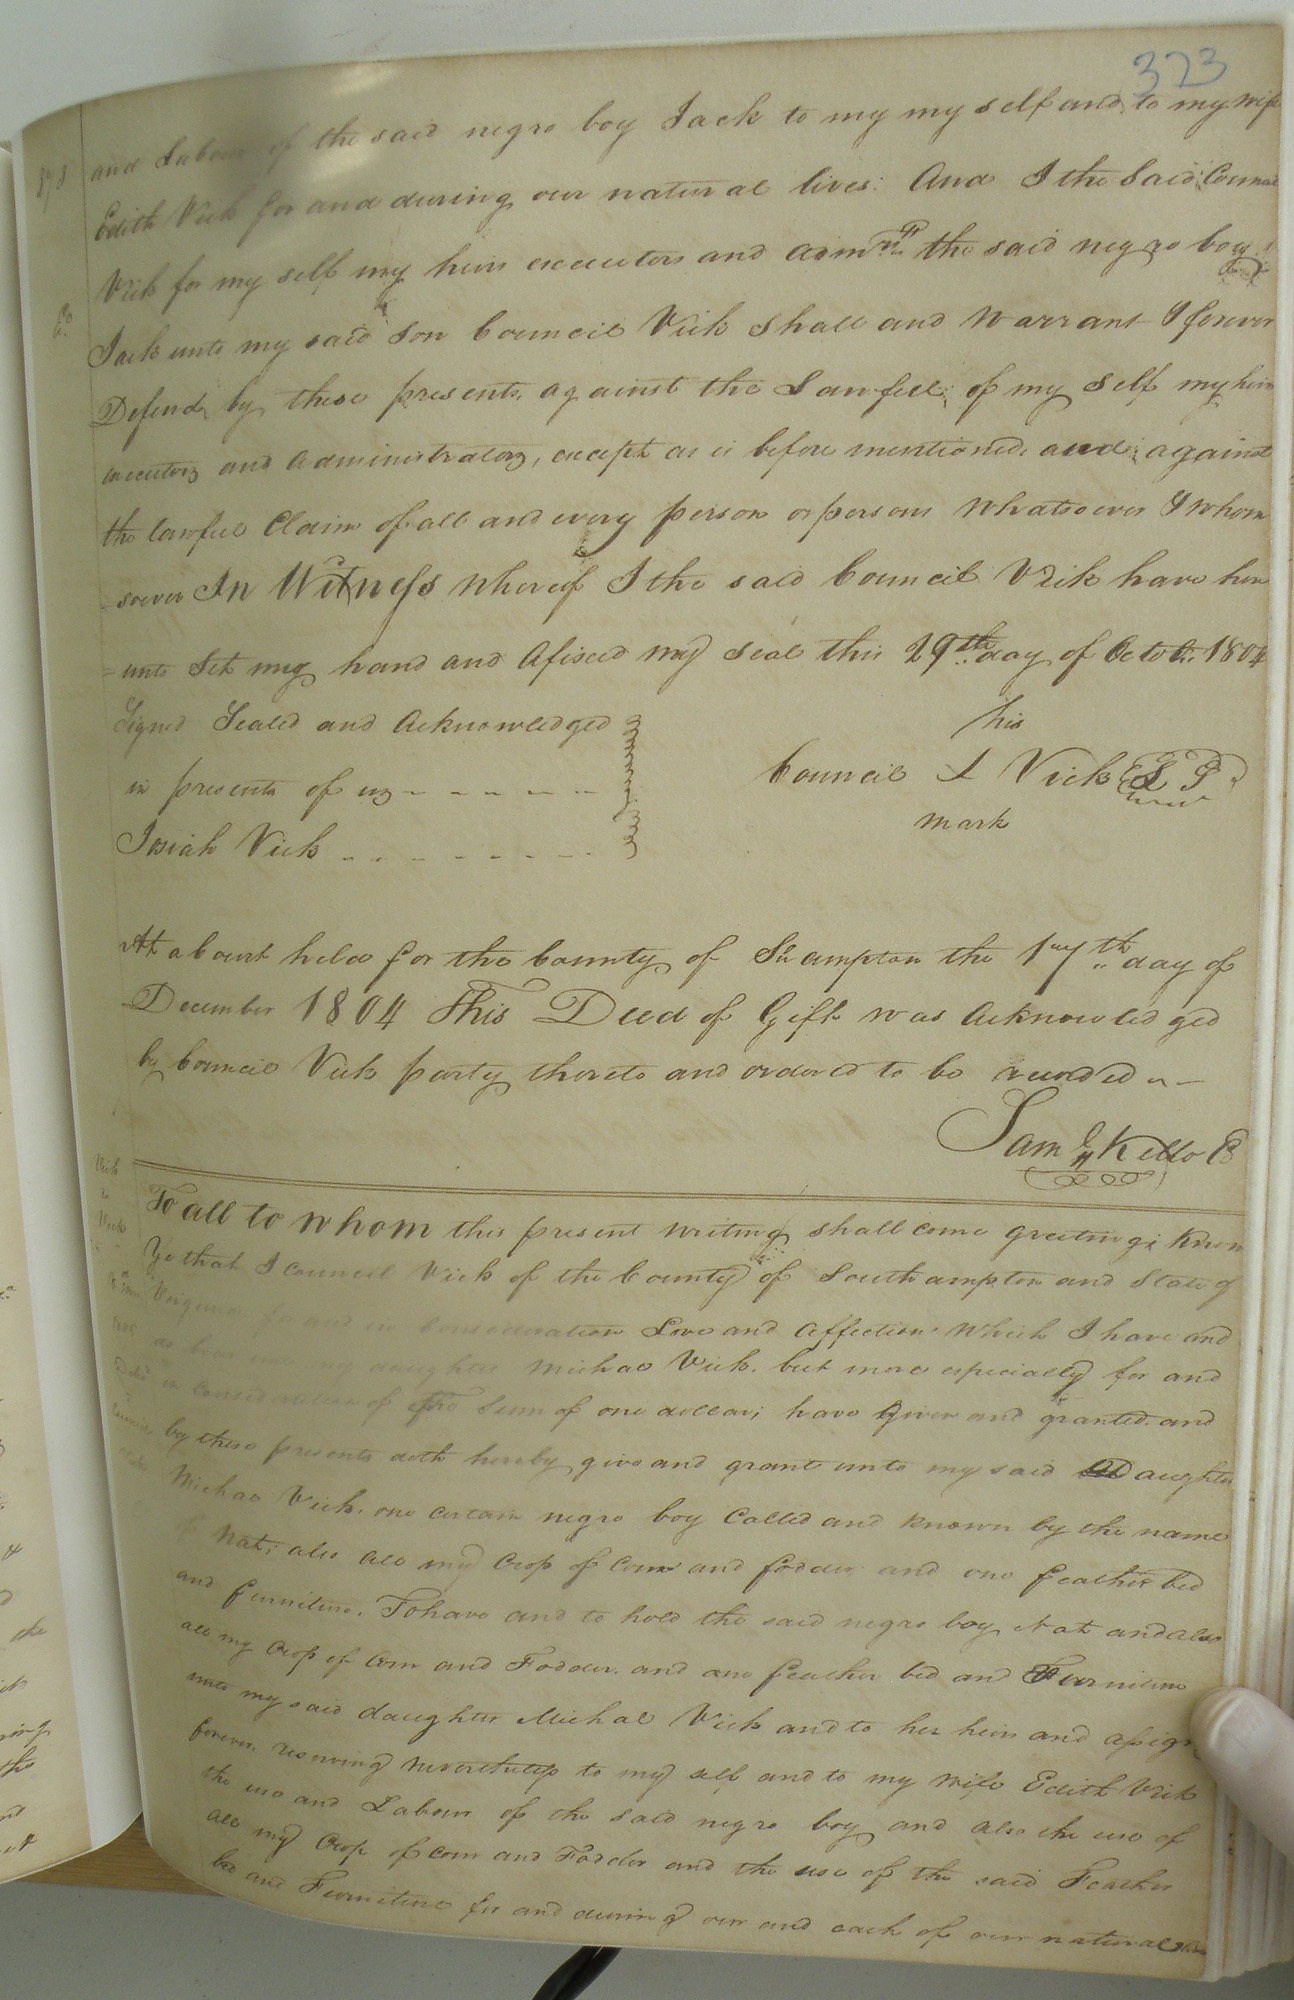 323
and Labour of the said negro boy Jack to my my self and to my wife
Edith Vick for and during our natural lives: And I the Said Council
Vick for my self my heirs executors and adm.rs the said negro boy
Jack unto my said Son Council Vick Shall and Warrant & forever
Defend by these presents, against the Lawfull of my Self my heirs
executors and administrators, except as is before mentioned and against
the lawfull Claim of all and every person or persons whatsoever & whom
soever In Witness whereof I the said Council Vick have here
=unto Set my hand and Afixed my seal this 29th day of Octob: 1804
Signed Sealed and Acknowledged
his
in presents of us - - - - - -
Council I Vick L S
mark
Josiah Vick - - - - - - - -
At a Court held for the County of S.hampton the 17th day of
December 1804 This Deed of Gift was Acknowledged
by Council Vick party thereto and ordered to be recorded
Sam.l Kello C
Vick
to
Vick
To all to whom this present writing shall come greeting; Know
Ye that I Council Vick of the County of Southampton and State of
Virginia for and in Consideration Love and Affection which I have and
do bear unto my daughter Michae Vick. but more especially for and
in Consideration of the Sum of one dollar; have Given and granted and
by these presents doth hereby give and grant unto my said Daughter
Michae Vick. one certain negro boy Called and known by the name
of Nat; also all my Crop of Corn and fodder and one feather bed
and furniture. To have and to hold the said negro boy Nat and also
all my Crop of Corn and Fodder. and one feather bed and Furniture
unto my said daughter Michal Vick and to her heirs and assigns
forever. reserving nevertheless to my self and to my wife Edith Vick
the use and Labour of the said negro boy and also the use of
all my Crop of Corn and Fodder and the use of the said Feather
bed and Furniture for and during our and each of our natural